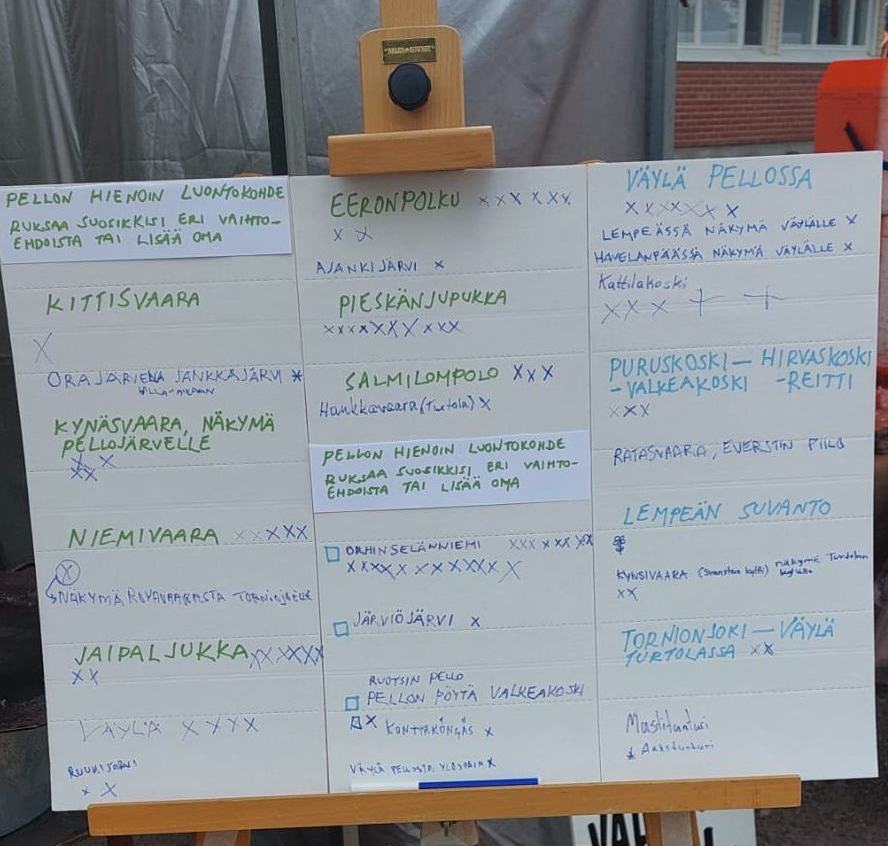 PELLON HIENOIN LUONTOKOHDE
RUKSAA SUOSIKKISI ERI VAIHTO-
EHDOISTA TAI LISÄÄ OMA
KITTISVAARA
X
ORAJÄRVEN JÄNKKÄJÄRVI X
KYNÄSVAARA, NÄKYMÄ
PELLOJÄRVELLE
X X
XX
NIEMIVAARA X X X X X
X
NÄKYMÄ
JAIPALJUKKA X X X X X
X X
VÄYLÄ X X X X
RUUKIJÄRVI
X X
EERONPOLKU X X X X X X
X X
AJANKIJÄRVI X
PIESKÄNJUPUKKA
X X X X X X X X X X
SALMILOMPOLO X X X
Hankkavaara (Turtola) X
PELLON HIENOIN LUONTOKOHDE
RUKSAA SUOSIKKISI ERI VAIHTO-
EHDOISTA TAI LISÄÄ OMA
ORHINSELÄNNIEMI X X X X X X X
X X X X X X X X X X X
JÄRVIÖJÄRVI X
RUOTSIN PELLO
PELLON PÖYTÄ VALKEAKOSKI
X KONTTAKÖNGÄS X
VÄYLÄ PELLOSTA YLÖSPÄIN X
VÄYLÄ PELLOSSA
X X X X X X X
LEMPEÄSSÄ NÄKYMÄ VÄYLÄLLE X
HAVELANPÄÄSSÄ NÄKYMÄ VÄYLÄLLE X
Kattilakoski
X X X + +
PURUSKOSKI — HIRVASKOSKI
- VALKEAKOSKI - REITTI
X X X
RATASVAARA, EVERSTIN PIILO
LEMPEÄN SUVANTO
KYNSIVAARA näkymä Turtolan
X X
TORNIONJOKI — VÄYLÄ
TURTOLASSA X X
Mustitunturi
Aakstunturi